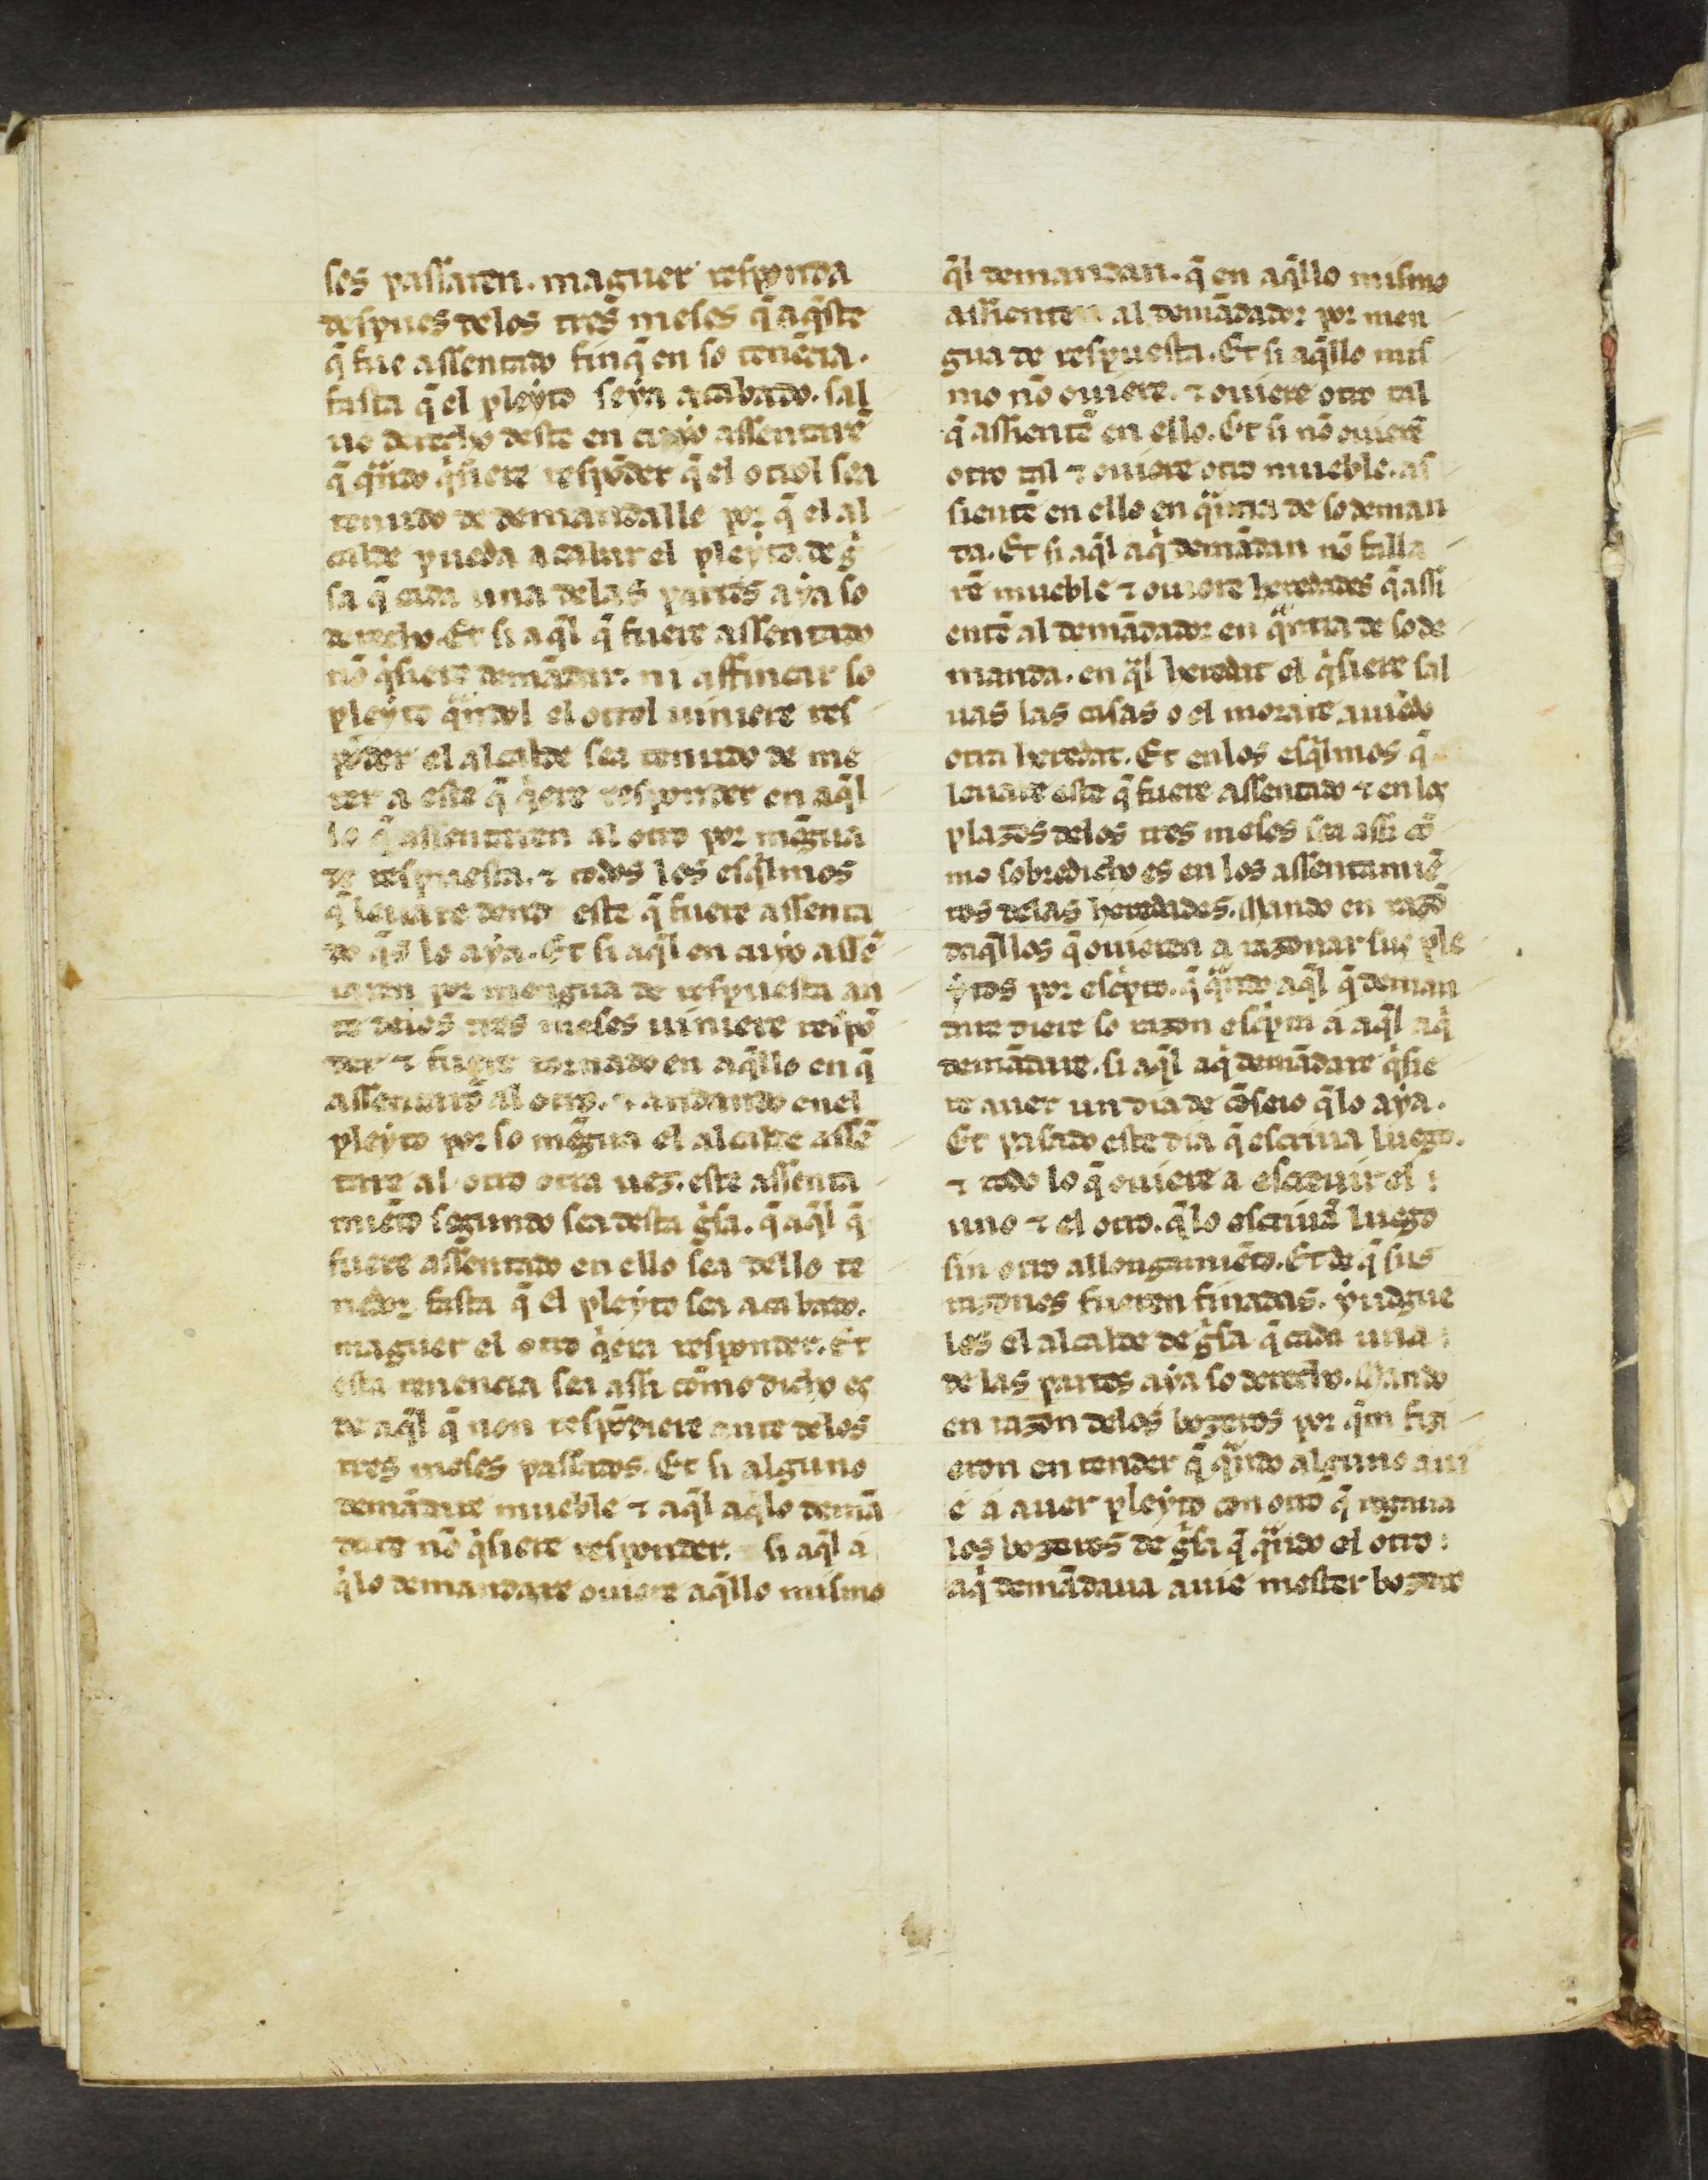 ses passaren. maguer responda
despues delos tres meses q̃ aq̃ste
q̃ fue assentado finq̃ en so tenẽcia.
fasta q̃ el pleyto seya acabado. sal
uo derecho deste en cuyo assentarẽ
q̃ qñdo q̇siere respõder q̃ el otrol sea
tenudo de demandalle por q̃ el al
calde pueda acabar el pleyto. de g̃
sa q̃ cada una delas partes aya so
derecho. Et si aq̃l q̃ fuere assentado
nõ q̇siere demãdar. ni affincar so
pleyto qñdol el otrol uiniere res
põder el alcalde sea tenudo de me
ter a este q̃ q̇ere responder en aq̃l
lo q̃ assentaren al otro por mẽgua
de respuesta. ⁊ todos los esq̃lmos
q̃ leuare dend este q̃ fuere assenta
do q̃s lo aya. Et si aq̃l en cuyo assẽ
taren por mengua de respuesta an
te delos tres meses uiniere respõ
der ⁊ fuere tornado en aq̃llo en q̃
assentarõ al otro. ⁊ andando enel
pleyto por so mẽgua el alcalde assẽ
tare al otro otra uez. este assenta
miẽto segundo sea desta g̃sa. q̃ aq̃l q̃
fuere assentado en ello sea dello te
nedor fasta q̃ el pleyto sea acabado.
maguer el otro q̇era responder. Et
esta tenencia sea assi cõmo dicho es
de aq̃l q̃ non respõdiere ante delos
tres meses passados. Et si alguno
demãdare mueble ⁊ aq̃l aq̃lo demã
dare nõ q̇siere responder. si aq̃l a
q̇lo demandare ouiere aq̃llo mismo
q̃l demandan. q̃ en aq̃llo mismo
assienten al demãdador por men
gua de respuesta. Et si aq̃llo mis
mo nõ ouiere. ⁊ ouiere otro tal
q̃ assientẽ en ello. Et si nõ ouierẽ
otro tal ⁊ ouiere otro mueble. as
sientẽ en ello en qñtia de so deman
da. Et si aq̃l aq̇ demãdan nõ falla
rẽ mueble ⁊ ouiere heredades q̃ assi
entẽ al demãdador en qñtia de so de
manda. en q̃l heredat el q̇siere sal
uas las casas o el morare auiẽdo
otra heredat. Et en los esq̃lmos q̃
leuare este q̃ fuere assentado ⁊ en los
plazos delos tres meses sea assi cõ
mo sobredicho es en los assentamiẽ
tos delas heredades. Mando en razõ
daq̃llos q̃ ouieren a razonar sus ple
ytos por escp̃to. q̃ qñdo aq̃l q̃ deman
dare diere so razon escp̃ta a aq̃l aq̇
demãdare. si aq̃l aq̇ demãdare q̇sie
re auer un dia de cõseio q̃lo aya.
Et pasado este dia q̃ escriua luego.
⁊ todo lo q̃ ouiere a escreuir el
uno ⁊ el otro. q̃lo escriuã luego
sin otro allongamiẽto. Et de q̃ sus
razones fueren finadas. yudgue
los el alcalde de g̃sa q̃ cada una
de las partes aya so derecho. Mando
en razon delos bozeros por q̃m fizi
eron entender q̃ qñdo alguno aui
e a auer pleyto con otro q̃ rogaua
los bozeros de g̃sa q̃ qñdo el otro
aq̇ demãdaua auie mester bozero